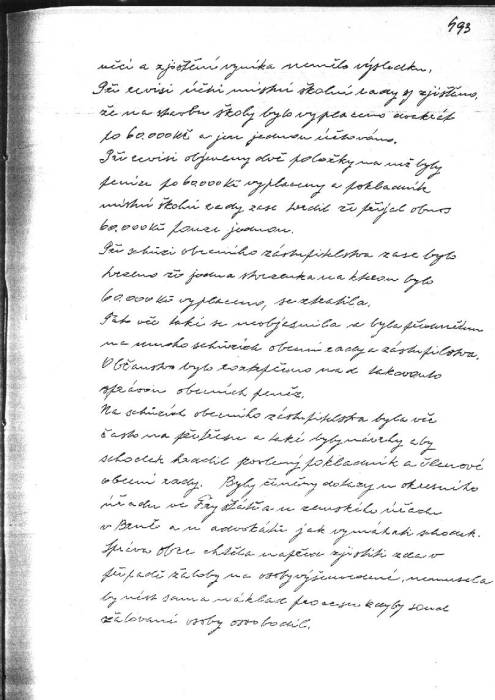 493
něčí a zjištění vzniku nemělo výsledku.
Při revisi účtů místní školní rady zjištěno,
že na stavbu školy bylo vyplaceno dvakrát
po 60.000 Kč a jen jednou účtováno.
Při revisi objeveny dvě položky na něž byly
peníze po 60000 Kč vyplaceny a pokladník
místní školní rady zase tvrdil že přijal obnos
60.000 Kč pouze jednou.
Při schůzi obecního zastupitelstva zase bylo
tvrzeno že jedna stvrzenka na kterou bylo
60.000 Kč vyplaceno, se ztratila.
Tato věc také se neobjasnila a byla předmětem
na mnoho schůzích obecní rady a zastupitelstva.
Občanstvo bylo roztrpčeno nad takovouto
správou obecních peněz.
Na schůzích obecního zastupitelstva byla věc
často na přetřesu a také byly návrhy aby
schodek hradil pokladník a členové
obecní rady. Byly činěny dotazy u okresního
úřadu ve Fryštátě a u zemského úřadu
v Brně a u advokátů jak vymáhati schodek.
Správa obce chtěla napřed zjistiti zda v
případě žaloby na osoby výšeuvedené, nemusela
by nést sama náklad procesu kdyby soud
žalované osoby osvobodil.